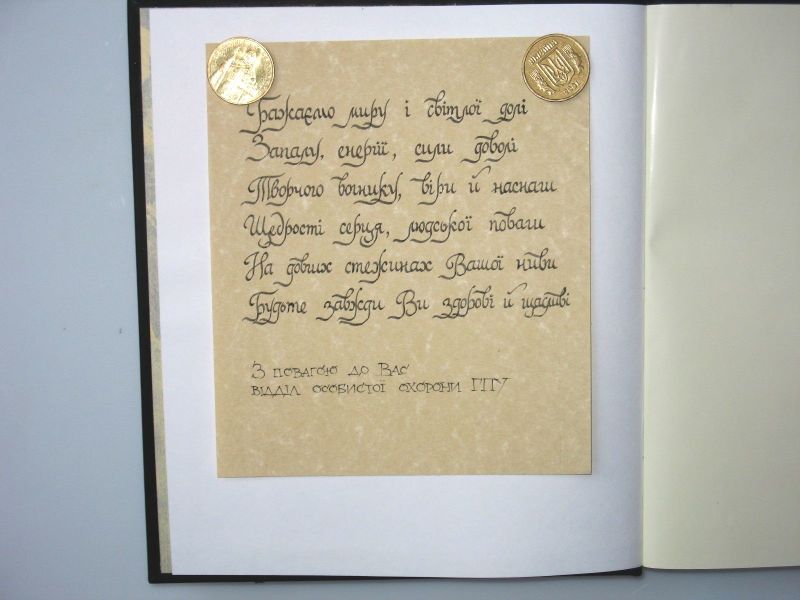 Бажаємо миру і світлої долі
Запалу, енергії, сили доволі
Творчого вогнику, віри й наснаги
Щедрості серця, людської поваги
На довгих стежинах Вашої ниви
Будьте завжди Ви здорові й щасливі
З повагою до Вас
відділ особистої охорони ГПУ